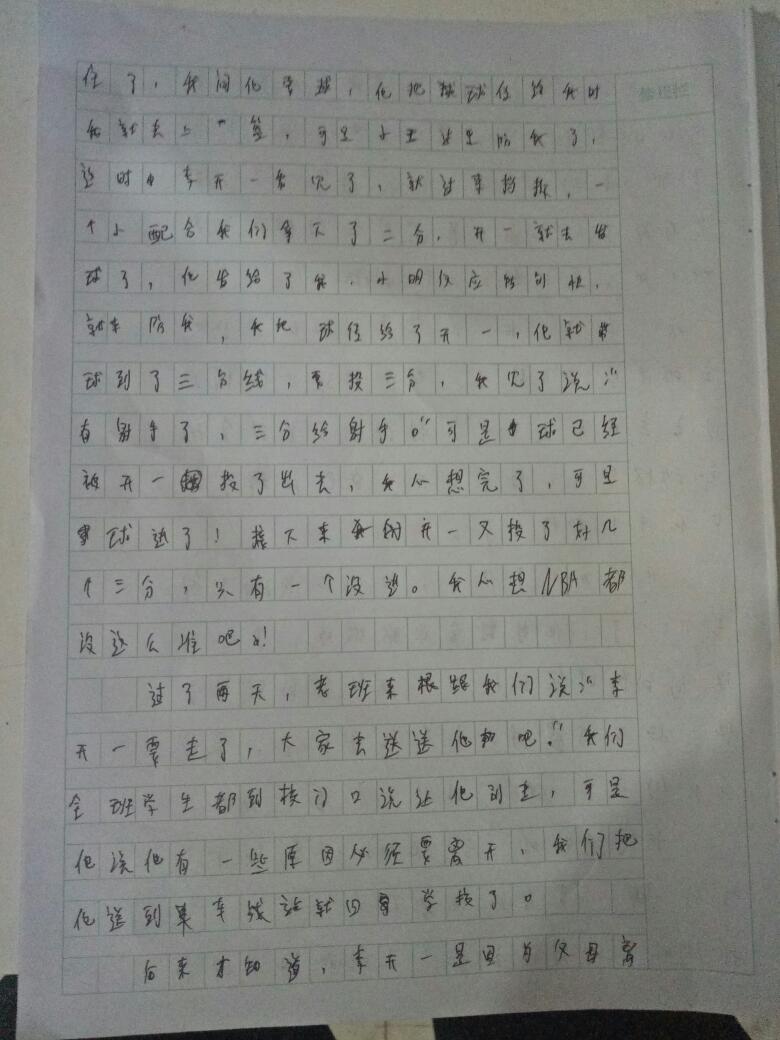 住了，我问他要球，他把球传给我时
我就去上一篮，可是小王过来防我了，
这时李开一看见了，就过来挡拆，一
个小配合我们拿下了二分，开一就去发
球了，他发给了我，小明反应特别快，
就来防我，我把球传给了开一，他就带
球到了三分线，要投三分，我见了说：“
有射手了，三分给射手。”可是球已经
被开一投了出去，我心想完了，可是
球进了！接下来开一又投了好几
个三分，只有一个没进。我心想NBA都
没这么准吧！
过了两天，老班来跟我们说：“李
开一要走了，大家去送送他吧。”我们
全班学生都到校门口说让他别走，可是
他说他有一些原因必须要离开，我们把
他送到车站就回学校了。
后来才知道，李开一是因为父母离